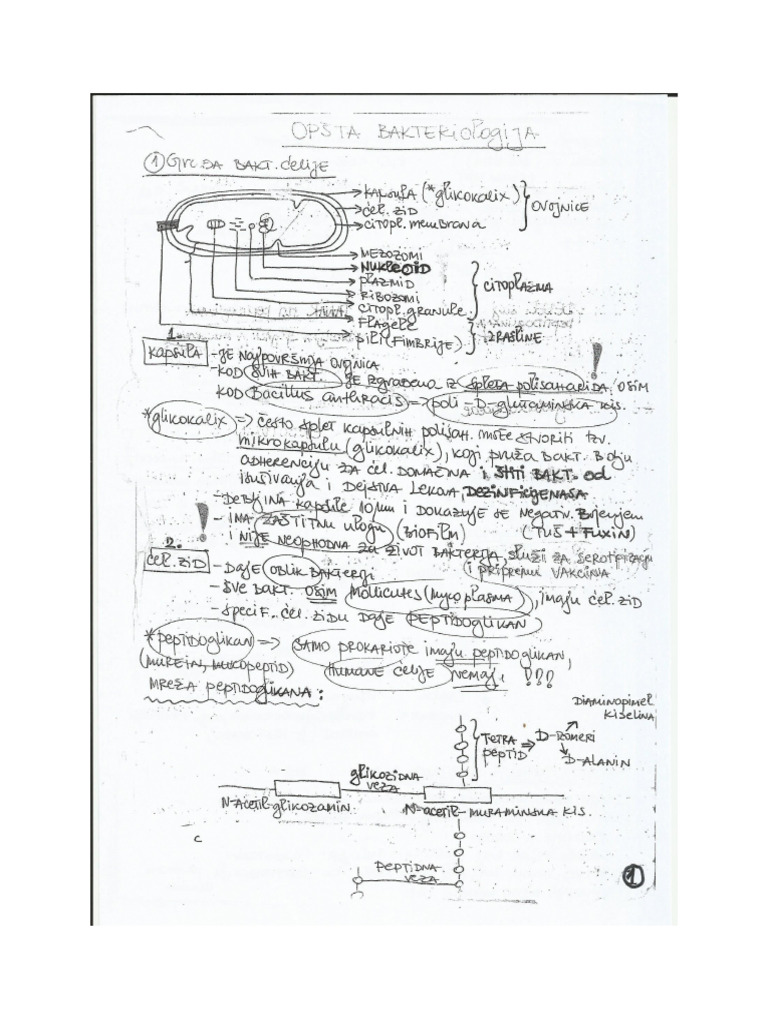 OPŠTA BAKTERIOLOGIJA
① Građa BAKT. ćelije
KAPSULA (*glikokalix)
ćel. zid
citopl. membrana
OVOJNICE
MEZOZOMI
NUKLEOID
plazmid
RIBOZOMI
citopl. granule
CITOPLAZMA
FlagelE
pili (Fimbrije)
IZRASLINE
1.
KAPSULA
- JE NAJPOVRŠNIJA OVOJNICA
!
- KOD SVIH BAKT. je izgrađena iz spleta polisaharida, osim
KOD Bacillus anthracis => poli-D-glutaminska kis.
*glikokalix => često splet kapsulnih polisah. može stvoriti tzv.
mikrokapsulu (glikokalix), koji pruža bakt. bolju
ADHERENCIJU ZA ćel. DOMAĆINA i štiti BAKT. od
isušivanja i Dejstva lekova, DEZINFICIJENASA
- Debljina kapsule 10µm i dokazuje se negativ. Bojenjem
!
- IMA ZAŠTITNU ulogu (BIOFILM) (TUŠ + FUXIN)
i NIJE NEOPHODNA za život BAKTERIJA, služi za serotipizaciju
i pripremu VAKCINA
2.
ćel. zid
- DAJE OBLIK BAKTERIJI
- SVE BAKT. OSIM Mollicutes (Mycoplasma), imaju ćel. zid
- specif. ćel. zidu daje PEPTIDOGLIKAN
*peptidoglikan => SAMO PROKARIOTE imaju peptidoglikan,
(MUREIN, MUKOpeptid) HUMANE ćelije nemaju !!!
MREŽA peptidoglikana:
DIAMINOPIMEL
KISELINA
TETRA
PEPTID => D-IZOMERI
D-ALANIN
glikozidna
VEZA
N-Acetil-glikozamin
N-acetil-MURAMINSKA KIS.
c
PEPTIDNA
VEZA
1